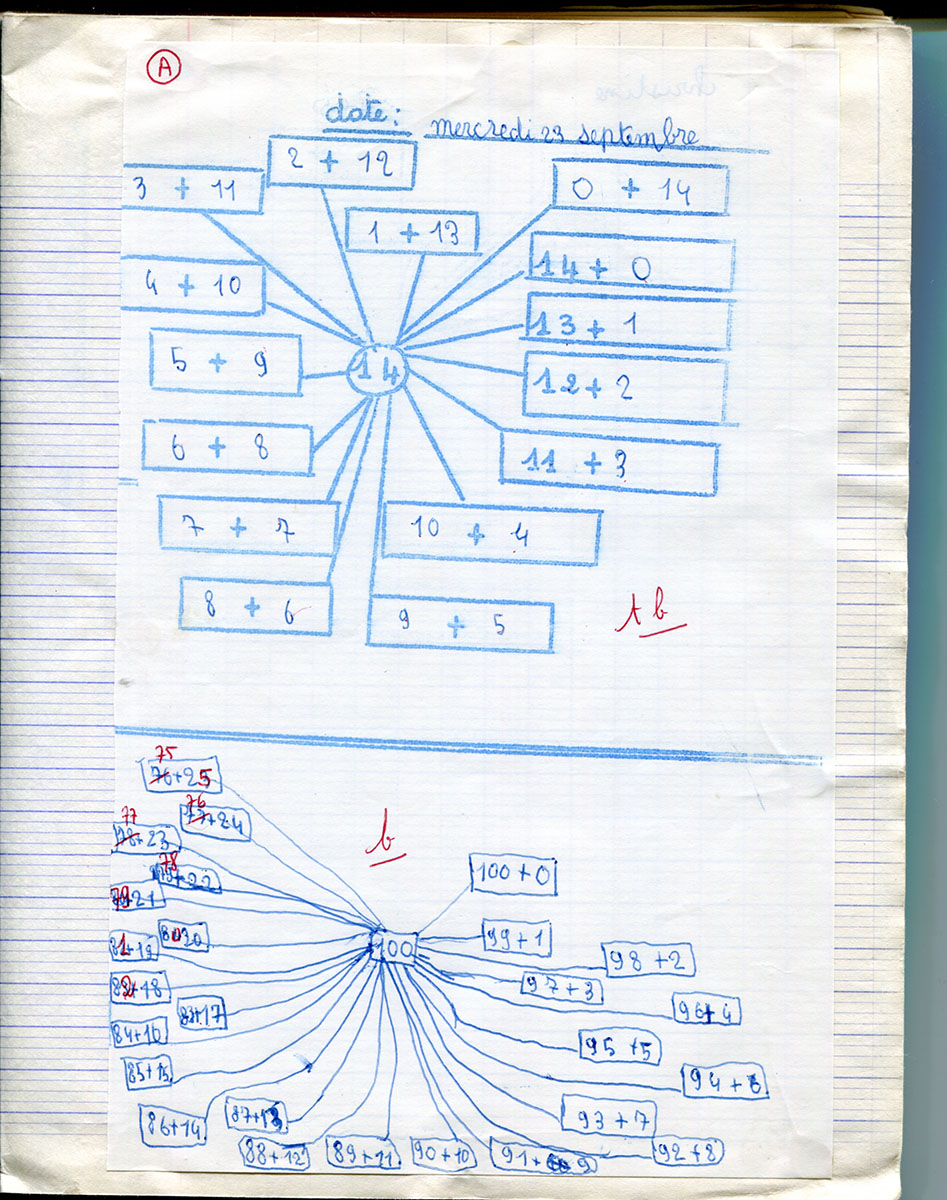 A
date: mercredi 23 septembre
2 + 12
3 + 11
0 + 14
1 + 13
14 + 0
4 + 10
13 + 1
5 + 9
14
12 + 2
6 + 8
11 + 3
7 + 7
10 + 4
8 + 6
9 + 5
tb
75
76+25
76
77+24
77
78+23
b
78
+22
100+0
79+21
80+20
99+1
81+19
100
98+2
82+18
97+3
83+17
96+4
84+16
95+5
85+15
94+6
86+14
87+13
93+7
88+12
89+11
90+10
91+9
92+8